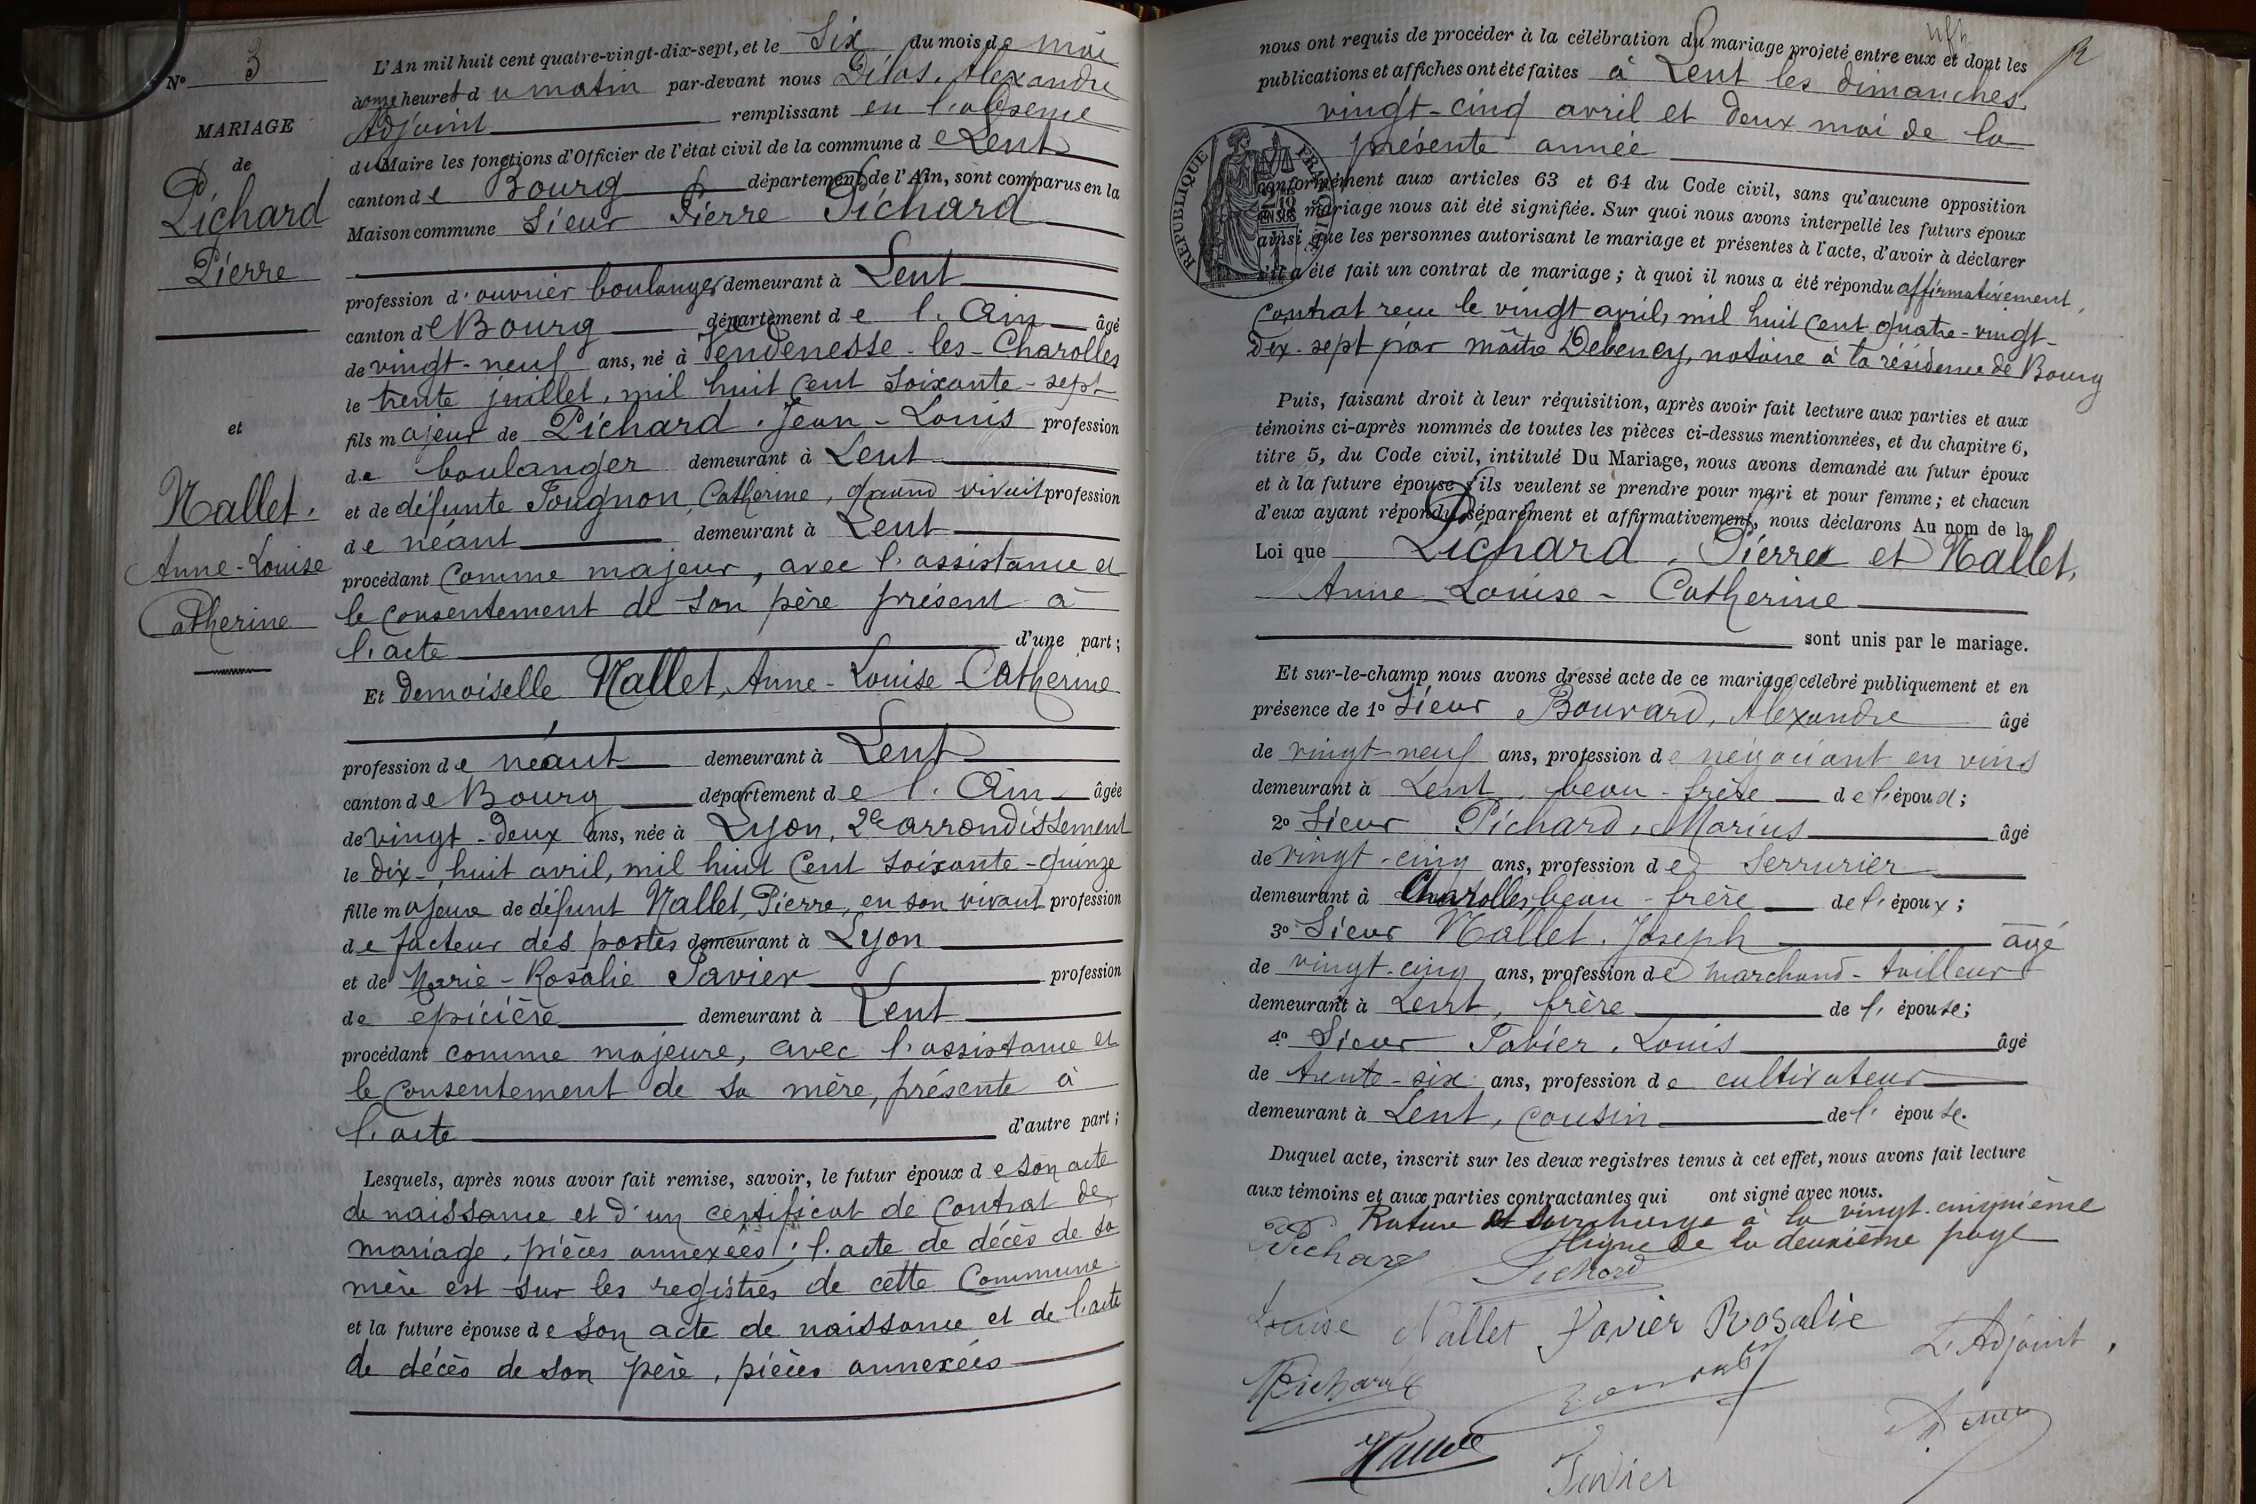 N° 3
MARIAGE
de
Pichard
Pierre
et
Nallet,
Anne-Louise
Catherine
L'An mil huit cent quatre-vingt-dix-sept, et le Six du mois de mai
à onze heures du matin par-devant nous Alexandre
Adjoint remplissant en l'absence
du Maire les fonctions d'Officier de l'état civil de la commune de Lent
canton de Bourg département de l'Ain, sont comparus en la
Maison commune Sieur Pierre Pichard
profession d'ouvrier boulanger demeurant à Lent
canton de Bourg département de l'Ain âgé
de vingt-neuf ans, né à Vendenesse-les-Charolles
le trente juillet, mil huit cent soixante-sept
fils majeur de Pichard, Jean-Louis profession
de boulanger demeurant à Lent
et de défunte Catherine, quand vivait profession
de néant demeurant à Lent
procédant comme majeur, avec l'assistance et
le consentement de son père présent à
l'acte d'une part;
Et demoiselle Nallet, Anne-Louise-Catherine
profession de néant demeurant à Lent
canton de Bourg département de l'Ain âgée
de vingt-deux ans, née à Lyon, 2e arrondissement
le dix-huit avril, mil huit cent soixante-quinze
fille majeure de défunt Nallet, Pierre, en son vivant profession
de facteur des postes demeurant à Lyon
et de Marie-Rosalie Favier profession
de épicière demeurant à Lent
procédant comme majeure, avec l'assistance et
le consentement de sa mère, présente à
l'acte d'autre part;
Lesquels, après nous avoir fait remise, savoir, le futur époux de son acte
de naissance et d'un certificat de contrat de
mariage, pièces annexées; l'acte de décès de sa
mère est sur les registres de cette Commune
et la future épouse de son acte de naissance et de l'acte
de décès de son père, pièces annexées
nous ont requis de procéder à la célébration du mariage projeté entre eux et dont les
publications et affiches ont été faites à Lent les dimanches
vingt-cinq avril et deux mai de la
présente année
RÉPUBLIQUE FRANÇAISE
EN SUS
conformément aux articles 63 et 64 du Code civil, sans qu'aucune opposition
mariage nous ait été signifiée. Sur quoi nous avons interpellé les futurs époux
ainsi que les personnes autorisant le mariage et présentes à l'acte, d'avoir à déclarer
s'il a été fait un contrat de mariage; à quoi il nous a été répondu affirmativement,
contrat reçu le vingt avril, mil huit cent quatre-vingt-
dix-sept par maître Debeney, notaire à la résidence de Bourg
Puis, faisant droit à leur réquisition, après avoir fait lecture aux parties et aux
témoins ci-après nommés de toutes les pièces ci-dessus mentionnées, et du chapitre 6,
titre 5, du Code civil, intitulé Du Mariage, nous avons demandé au futur époux
et à la future épouse s'ils veulent se prendre pour mari et pour femme; et chacun
d'eux ayant répondu séparément et affirmativement, nous déclarons Au nom de la
Loi que Pichard, Pierre et Nallet,
Anne-Louise-Catherine
sont unis par le mariage.
Et sur-le-champ nous avons dressé acte de ce mariage célébré publiquement et en
présence de 1° Sieur Bouvard, Alexandre âgé
de vingt-neuf ans, profession de négociant en vins
demeurant à Lent, beau-frère de l'époux;
2° Sieur Pichard, Marius âgé
de vingt-cinq ans, profession de serrurier
demeurant à Charolles beau-frère de l'époux;
3° Sieur Nallet, Joseph âgé
de vingt-cinq ans, profession de marchand-tailleur
demeurant à Lent, frère de l'épouse;
4° Sieur Favier, Louis âgé
de trente-six ans, profession de cultivateur
demeurant à Lent, cousin de l'épouse.
Duquel acte, inscrit sur les deux registres tenus à cet effet, nous avons fait lecture
aux témoins et aux parties contractantes qui ont signé avec nous.
Rature et surcharge à la vingt-cinquième
ligne de la deuxième page
Pichard
Pichard
Louise Nallet Favier Rosalie
L'Adjoint,
Pichard
Favier